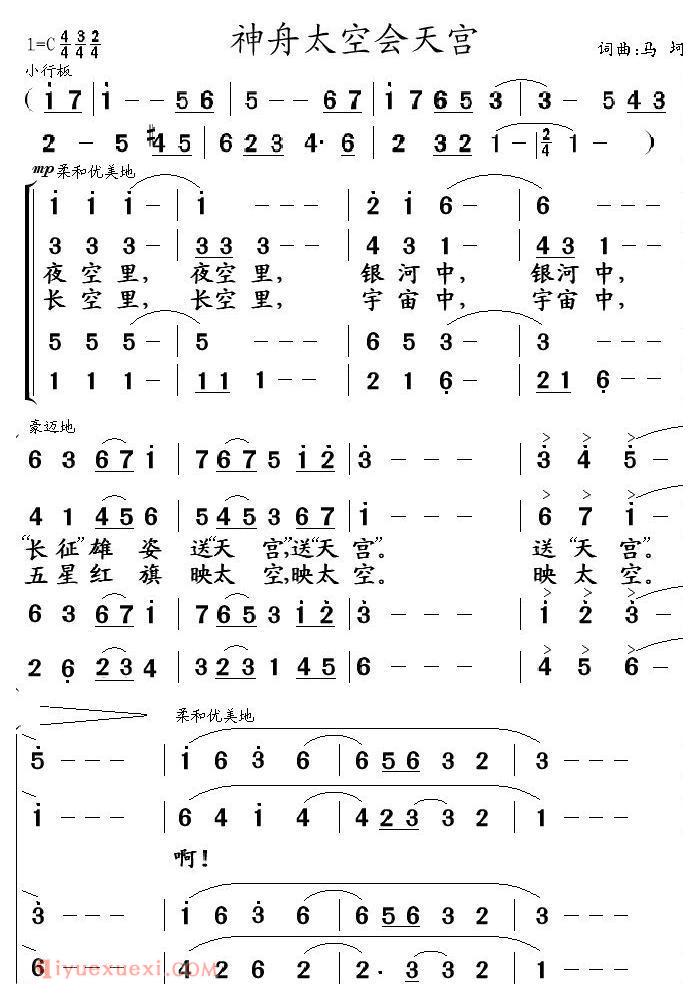 神舟太空会天宫
1=C 4/4 3/4 2/4
词曲:马 坷
小行板
( i 7 | i - - 5 6 | 5 - - 6 7 | i 7 6 5 3 | 3 - 5 4 3
2 - 5 #4 5 | 6 2 3 4· 6 | 2 3 2 1 - | 2/4 1 - )
mp 柔和优美地
i i i - | i - - - | 2 i 6 - | 6 - - -
3 3 3 - | 3 3 3 - - | 4 3 1 - | 4 3 1 - -
夜空里, 夜空里, 银河中, 银河中,
长空里, 长空里, 宇宙中, 宇宙中,
5 5 5 - | 5 - - - | 6 5 3 - | 3 - - -
1 1 1 - | 1 1 1 - - | 2 1 6 - | 2 1 6 - -
豪迈地
6 3 6 7 i | 7 6 7 5 i 2 | 3 - - - | 3 4 5 -
4 1 4 5 6 | 5 4 5 3 6 7 | i - - - | 6 7 i -
“长征”雄姿 送“天宫”,送“天宫”。 送“天宫”。
五星红旗 映太空,映太空。 映太空。
6 3 6 7 i | 7 6 5 3 i 2 | 3 - - - | i 2 3 -
2 6 2 3 4 | 3 2 3 1 4 5 | 6 - - - | 4 5 6 -
柔和优美地
5 - - - | i 6 3 6 | 6 5 6 3 2 | 3 - - -
i - - - | 6 4 i 4 | 4 2 3 3 2 | 1 - - -
啊!
3 - - - | i 6 3 6 | 6 5 6 3 2 | 3 - - -
6 - - - | 4 2 6 2 | 2· 3 3 2 | 1 - - -
jiyuexuexi.com